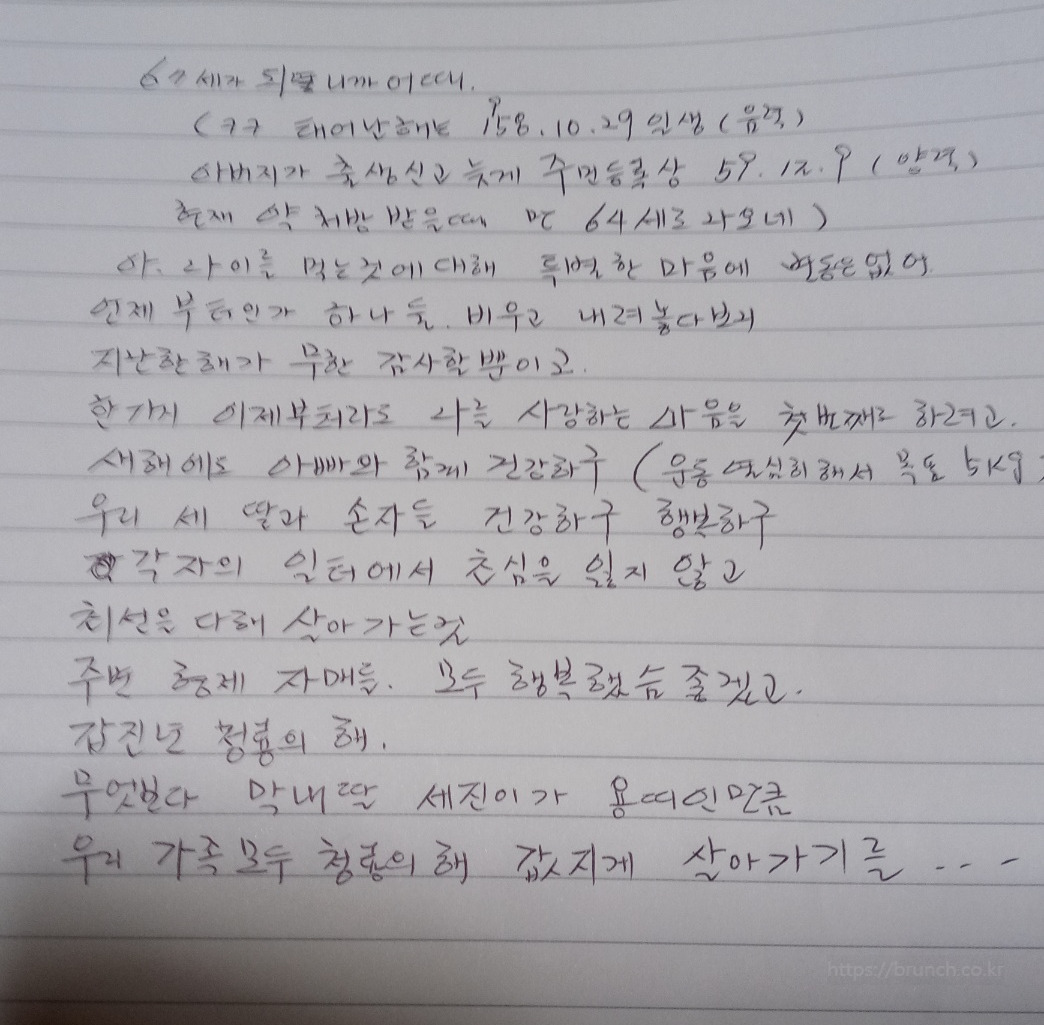 67세가 되면 니까 어때.
(ㅋㅋ 태어난해는 1958.10.29일생(음력)
아버지가 출생신고 늦게 주민등록상 59.12.9 (양력)
현재 약 처방 받을때 만 64세로 나오네)
아. 나이를 먹는것에 대해 특별한 마음에 변동은 없어
언제 부터인가 하나 둘. 비우고 내려놓다보니
지난한해가 무한 감사할뿐이고.
한가지 이제부터라도 나를 사랑하는 마음을 첫번째로 하려고.
새해에도 아빠와 함께 건강하구 (운동 열심히해서 목표 5Kg)
우리 세 딸과 손자들 건강하구 행복하구
각자의 일터에서 초심을 잃지 않고
최선을 다해 살아가는것
주변 형제 자매들. 모두 행복했슴 좋겠고.
갑진년 청룡의 해.
무엇보다 막내딸 세진이가 용띠인만큼
우리 가족모두 청룡의해 값지게 살아가기를 ...
https://brunch.co.kr